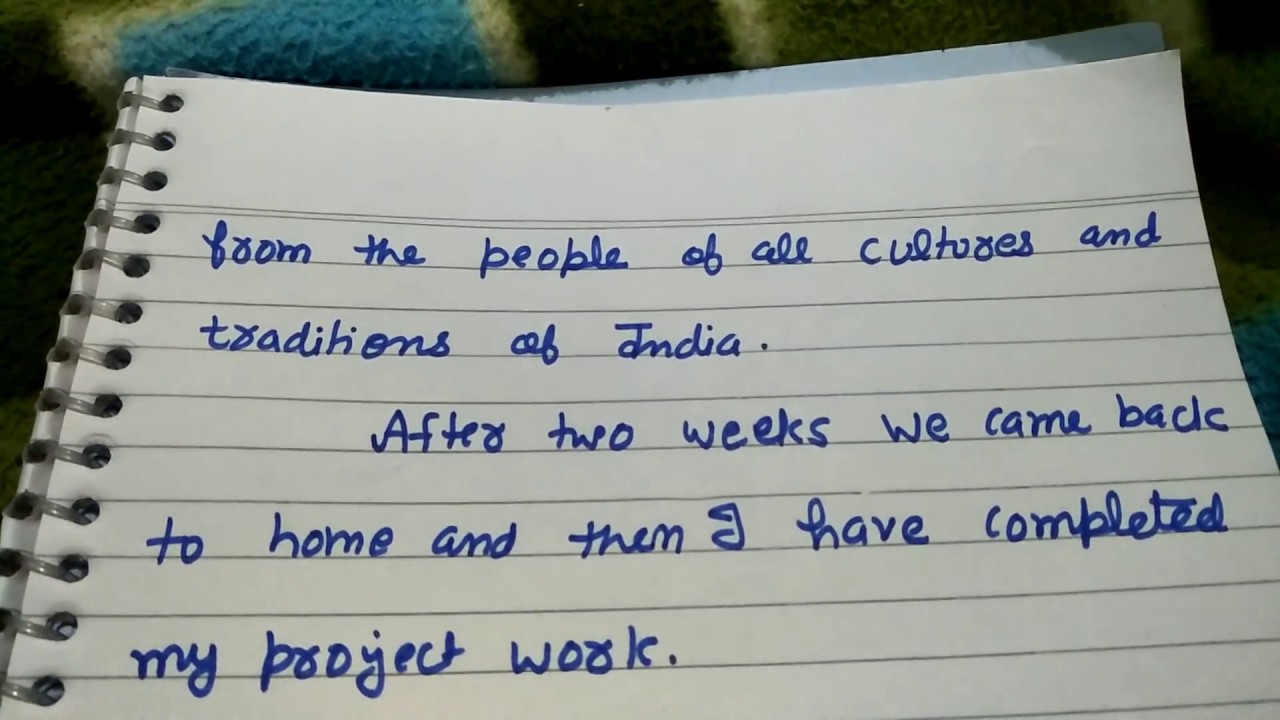 from the people of all cultures and
traditions of India.
After two weeks we came back
to home and then I have completed
my project work.